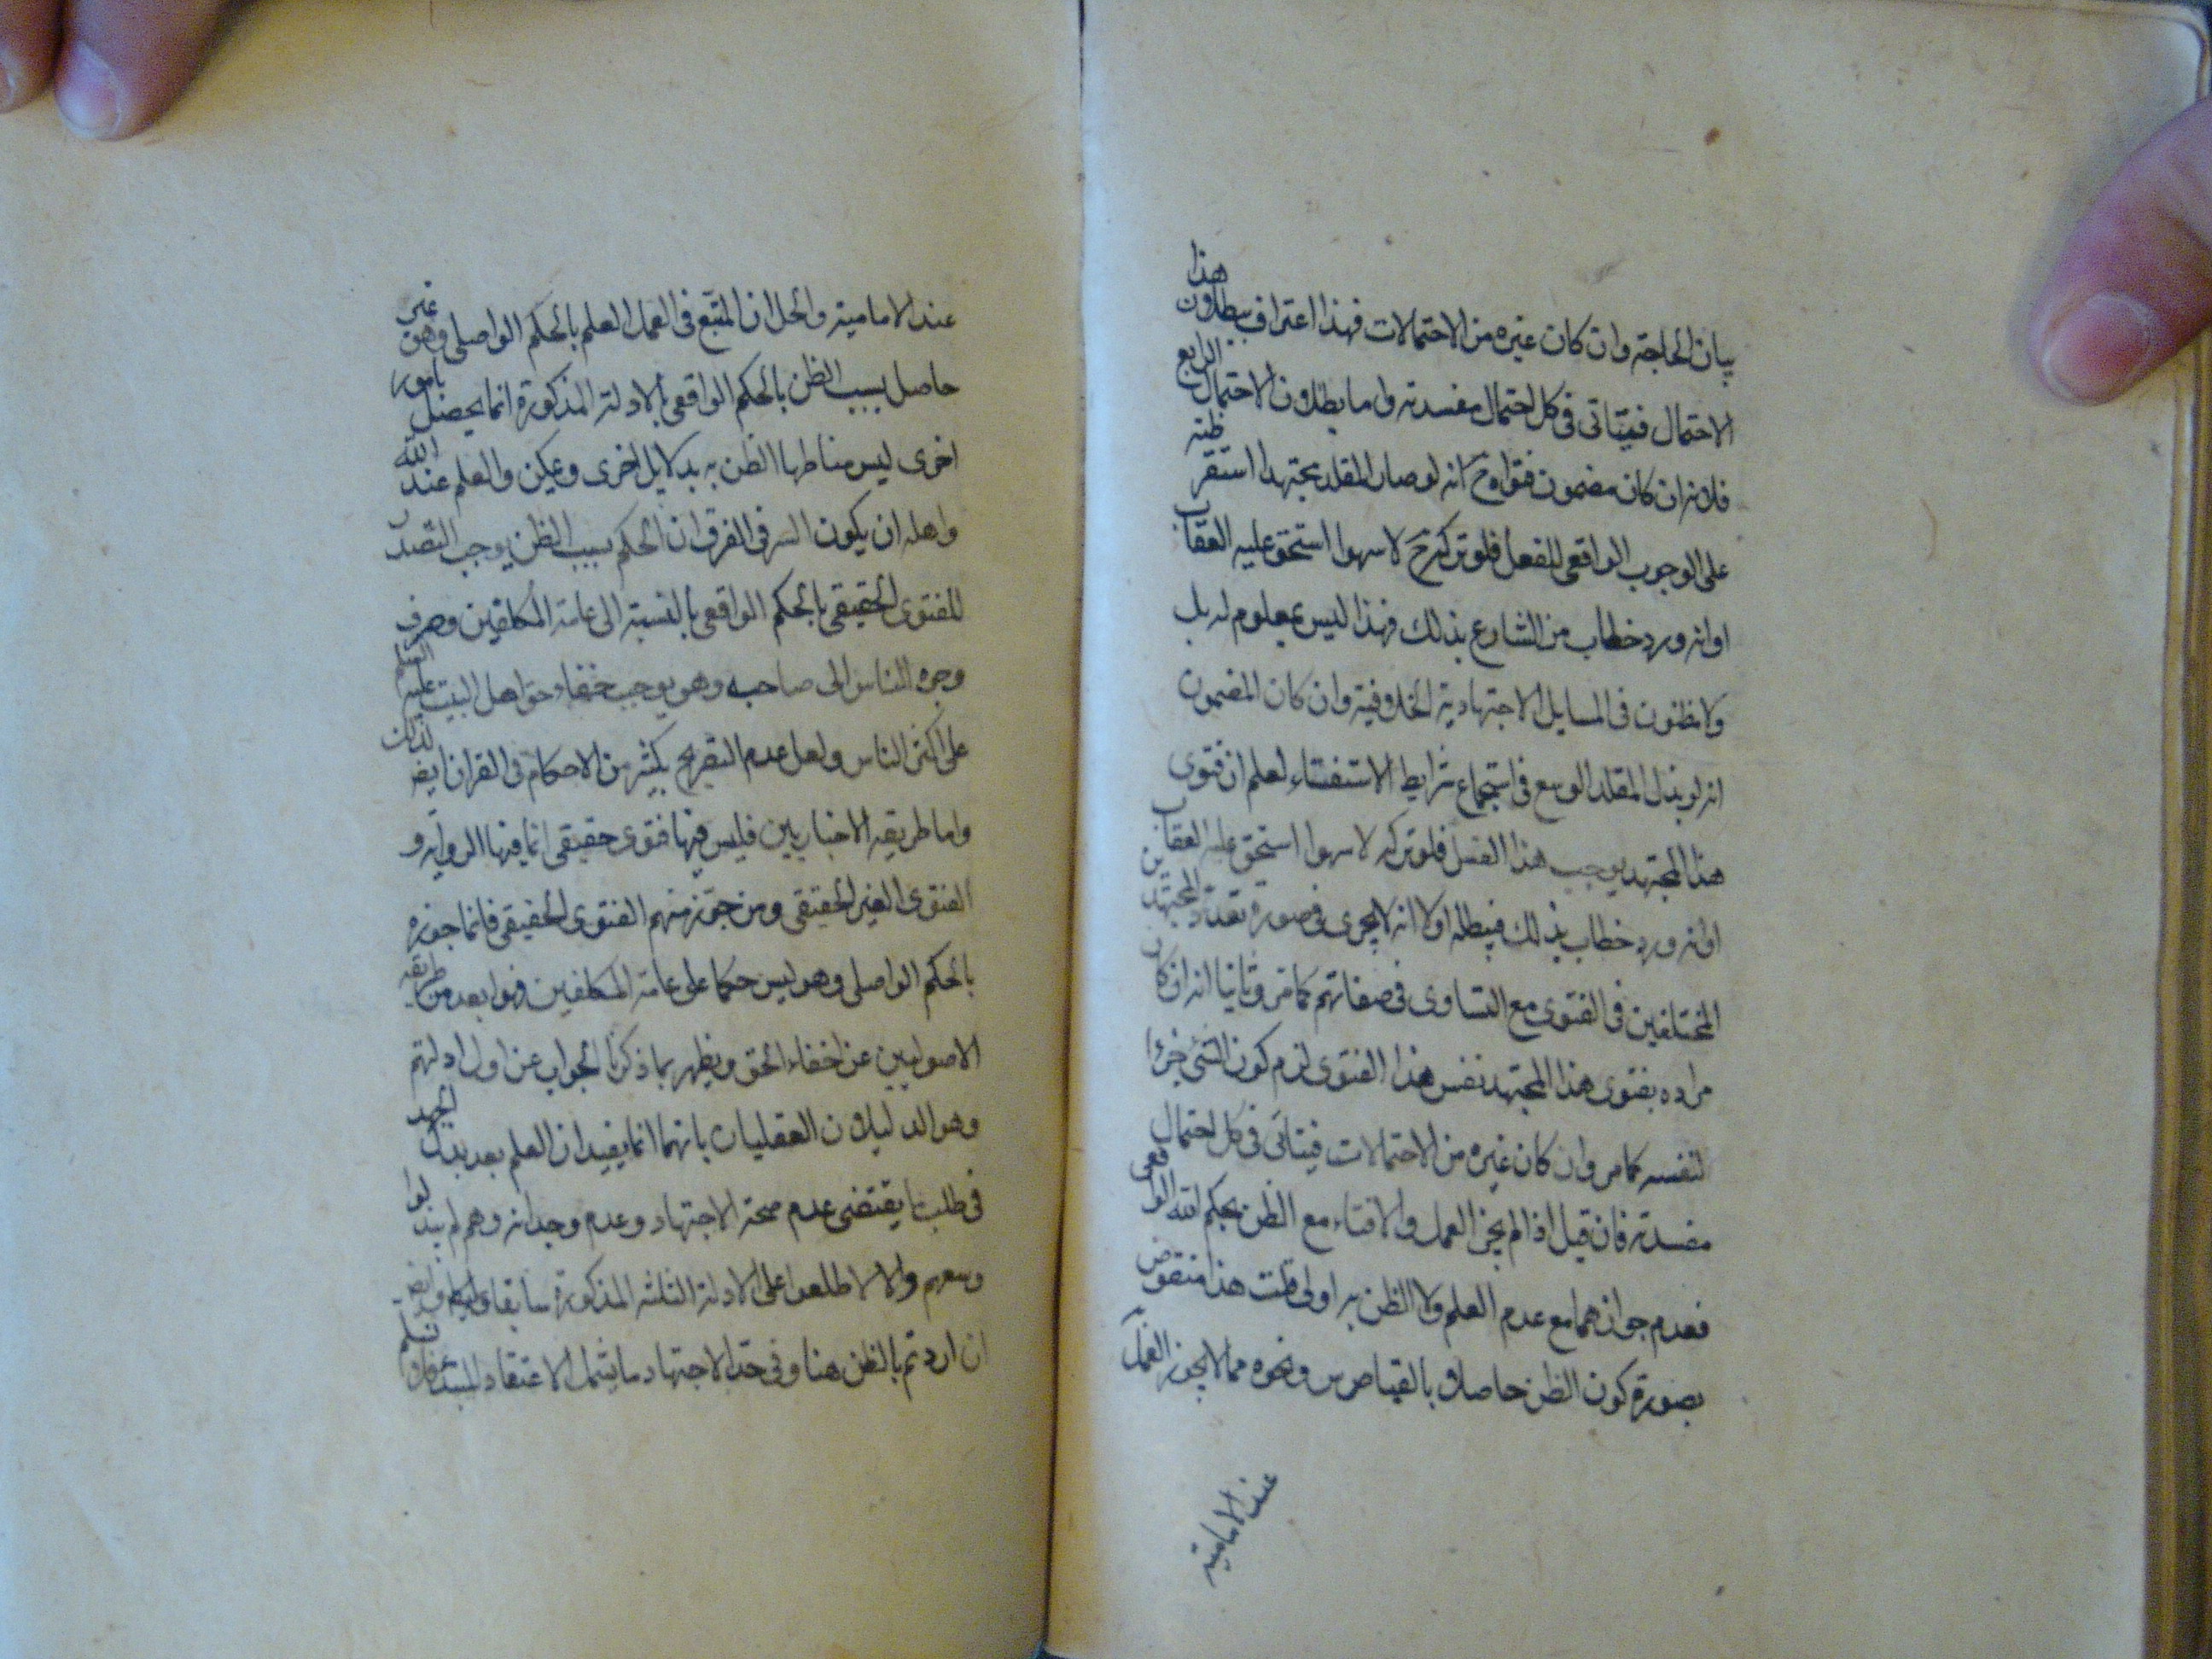 بيان الحاجة وان كان غيره من الاحتمالات فهذا اعتراف ببطلان هذا
الاحتمال فيتاتى فى كل احتمال مفسدته واما بطلان الاحتمال الرابع
فلانه ان كان مضمون فتواه ح انه لو صار المقلد مجتهدا استقر ظنه
على الوجوب الواقعى للفعل فلو تركه ح لا سهوا استحق عليه العقاب
او انه ورد خطاب من الشارع بذلك فهذا ليس بمعلوم له بل
ولا مظنون فى المسايل الاجتهادية الخلافية وان كان المضمون
انه لو بذل المقلد الوسع فى استجماع شرايط الاستفتاء لعلم ان فتوى
هذا المجتهد يوجب هذا الفعل فلو تركه لا سهوا استحق عليه العقاب
او انه ورد خطاب بذلك فيبطله اولا انه لا يجرى فى صورة تعدد المجتهدين
المختلفين فى الفتوى مع التساوى فى صفاتهم كما مر وثانيا انه ان كان
مراده بفتوى هذا المجتهد نفس هذا الفتوى لزم كون الشئ جزءا
لنفسه كما مر وان كان غيره من الاحتمالات فيتاتى فى كل احتمال
مفسدته فان قيل اذا لم يجز العمل والافتاء مع الظن بحكم الله الواقعى
فعدم جوازهما مع عدم العلم ولا الظن به اولى قلت هذا منقوض
بصورة كون الظن حاصلا بالقياس ونحوه مما لا يجوز العمل به
عند الامامية
عند الامامية والحل ان المتبع فى العمل العلم بالحكم الواصلى وهو غير
حاصل بسبب الظن بالحكم الواقعى بالادلة المذكورة انما يحصل بامور
اخرى ليس مناطها الظن به بدلايل اخرى ويمكن والعلم عند الله
واهله ان يكون السر فى الفرق ان الحكم بسبب الظن يوجب التصدر
للفتوى الحقيقى بالحكم الواقعى بالنسبة الى عامة المكلفين وصرف
وجوه الناس الى صاحبه وهو يوجب خفاء حق اهل البيت عليهم السلام
على اكثر الناس ولعل عدم التصريح بكثير من الاحكام فى القران ايضا لذلك
واما طريقة الاخباريين فليس فيها فتوى حقيقى انما فيها الرواية و
الفتوى الغير الحقيقى ومن جوز منهم الفتوى الحقيقى فانما جوزه
بالحكم الواصلى وهو ليس حكما على عامة المكلفين فهو ابعد من طريقة
الاصوليين عن اخفاء الحق ويظهر بما ذكرنا الجواب عن اول ادلتهم
وهو الدليلان العقليان بانهما انما يفيدان العلم بعد بذل الجهد
فى طلب ما يقتضى عدم صحة الاجتهاد وعدم وجدانه وهم لم يبذلوا
وسعهم والا لاطلعوا على الادلة الثلثة المذكورة سابقا
ان اردتم بالظن هنا وفى حد الاجتهاد ما يشمل الاعتقاد المبتدا